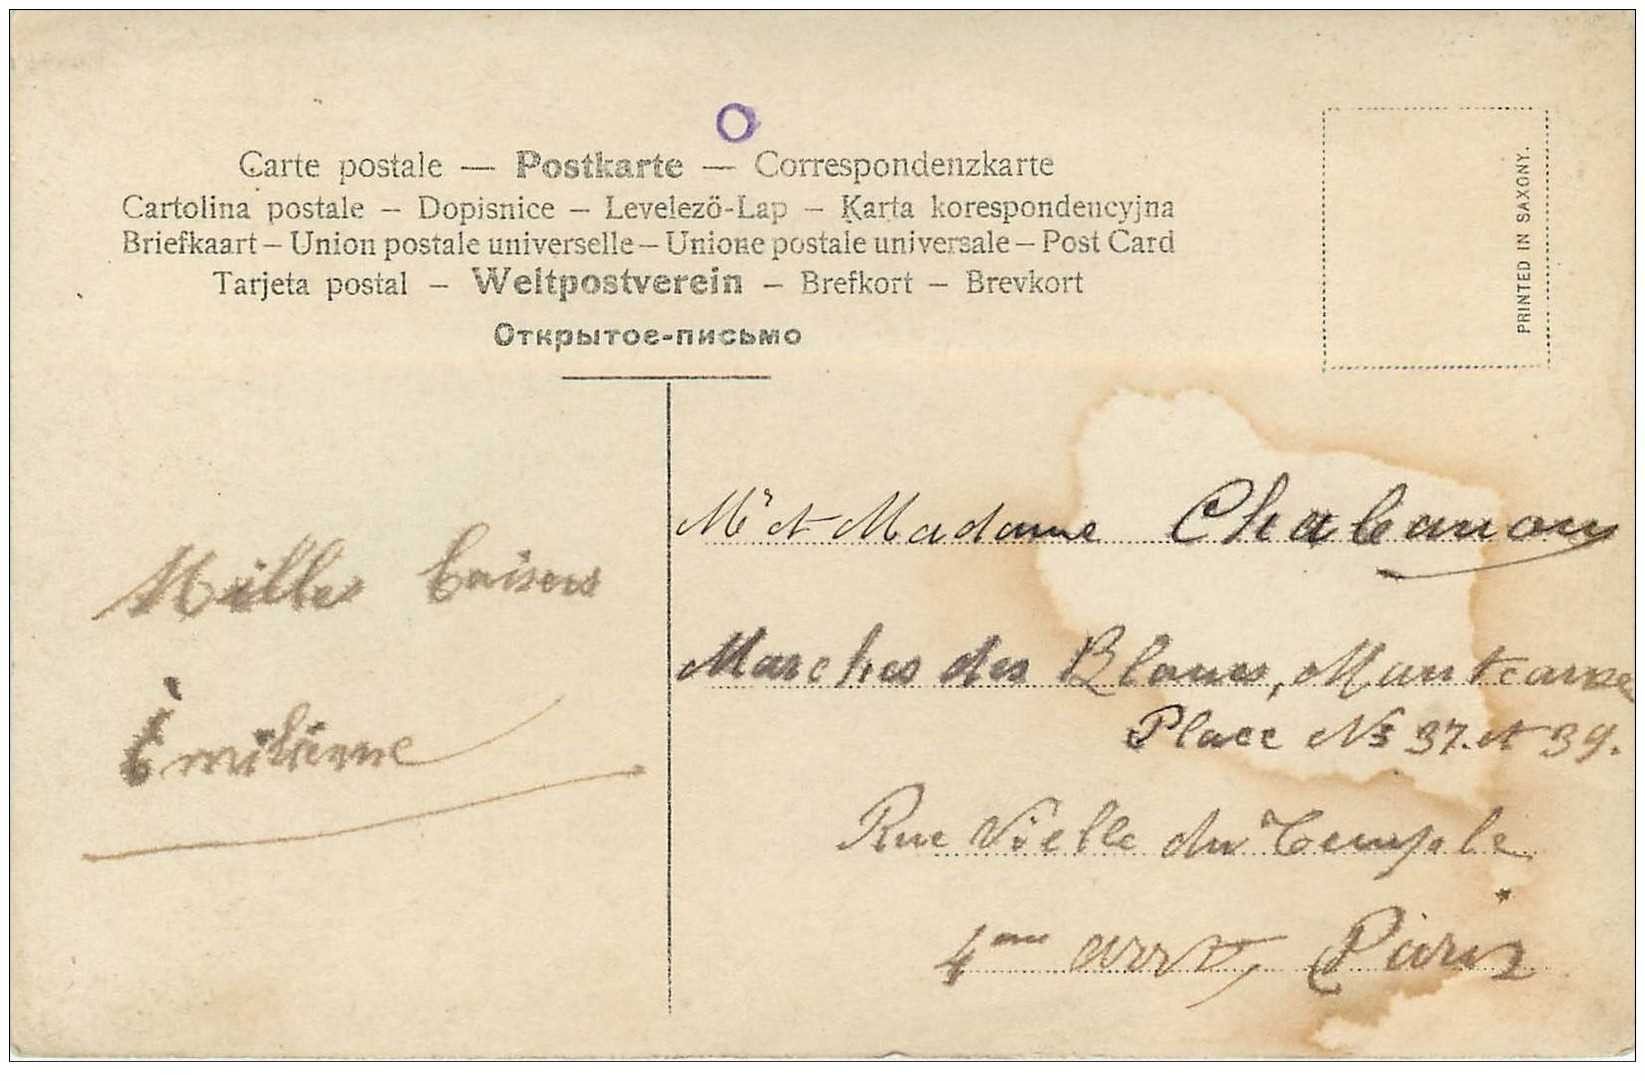 Carte postale — Postkarte — Correspondenzkarte
Cartolina postale – Dopisnice – Levelező-Lap – Karta korespondencyjna
Briefkaart – Union postale universelle – Unione postale universale – Post Card
Tarjeta postal – Weltpostverein – Brefkort – Brevkort
Открытое-письмо
PRINTED IN SAXONY.
Mille baisers
Émilienne
Mr et Madame Chabanon
Marches des Blancs, Manteaux
Place Ns 37. et 39.
Rue Vielle du Temple
4eme arrt, Paris